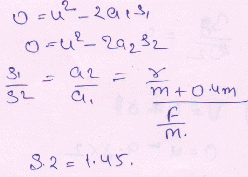 0 = u² - 2a₁s₁
0 = u² - 2a₂s₂
s₁/s₂ = a₂/a₁ = r/(m + 0.4m) / F/m.
s.2 = 1.45.